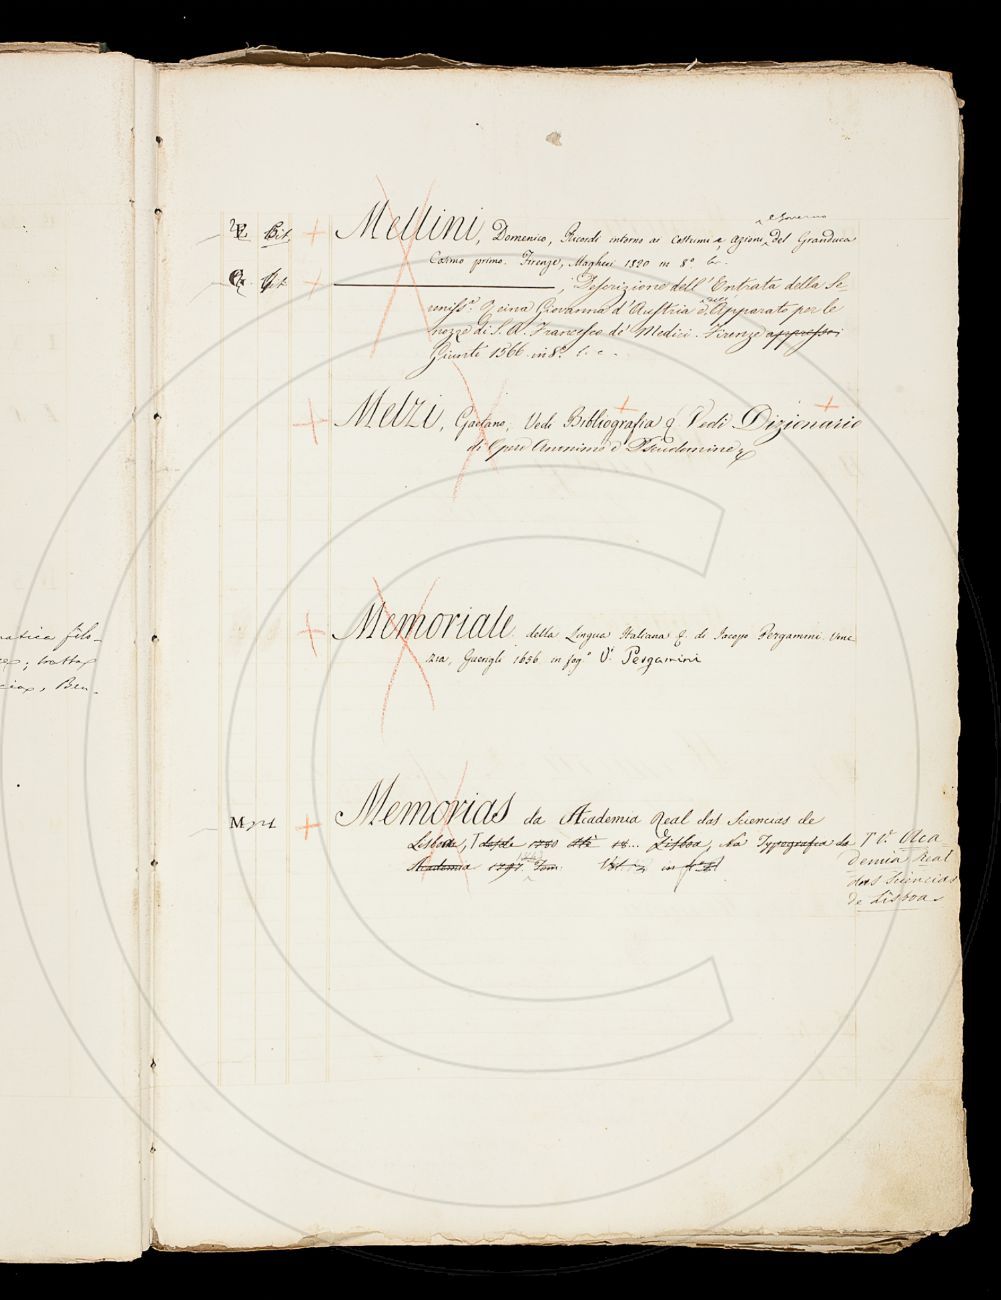 atica filo-
; tratta
Ben-
e Governo
Mellini, Domenico, Ricordi intorno ai Costumi e azioni del Granduca
Cosmo primo. Firenze, Magheri 1820 in 8.°
, Descrizione dell'Entrata della Se-
reniss.ª Reina Giovanna d'Austria e dell' Apparato per le
nozze di S. A. Francesco de' Medici. Firenze appresso i
Giunti 1566. in 8.°
Melzi, Gaetano, Vedi Bibliografia & Vedi Dizionario
di Opere Anonime e Pseudonime
Memoriale della Lingua Italiana & di Jacopo Pergamini. Vene-
zia, Guerigli 1656 in fog.° V. Pergamini
M
Memorias da Academia Real das Sciencias de
Lisboa, desde 1780 até 18... Lisboa, Na Typografia da
Academia 1797. Tom. in
Aca-
demia Real
das Sciencias
de Lisboa